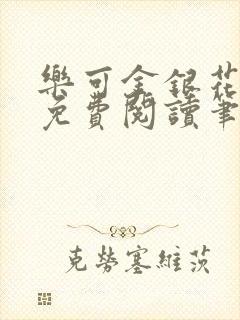 樂可金銀花
免費閱讀筆
克勞塞維茨